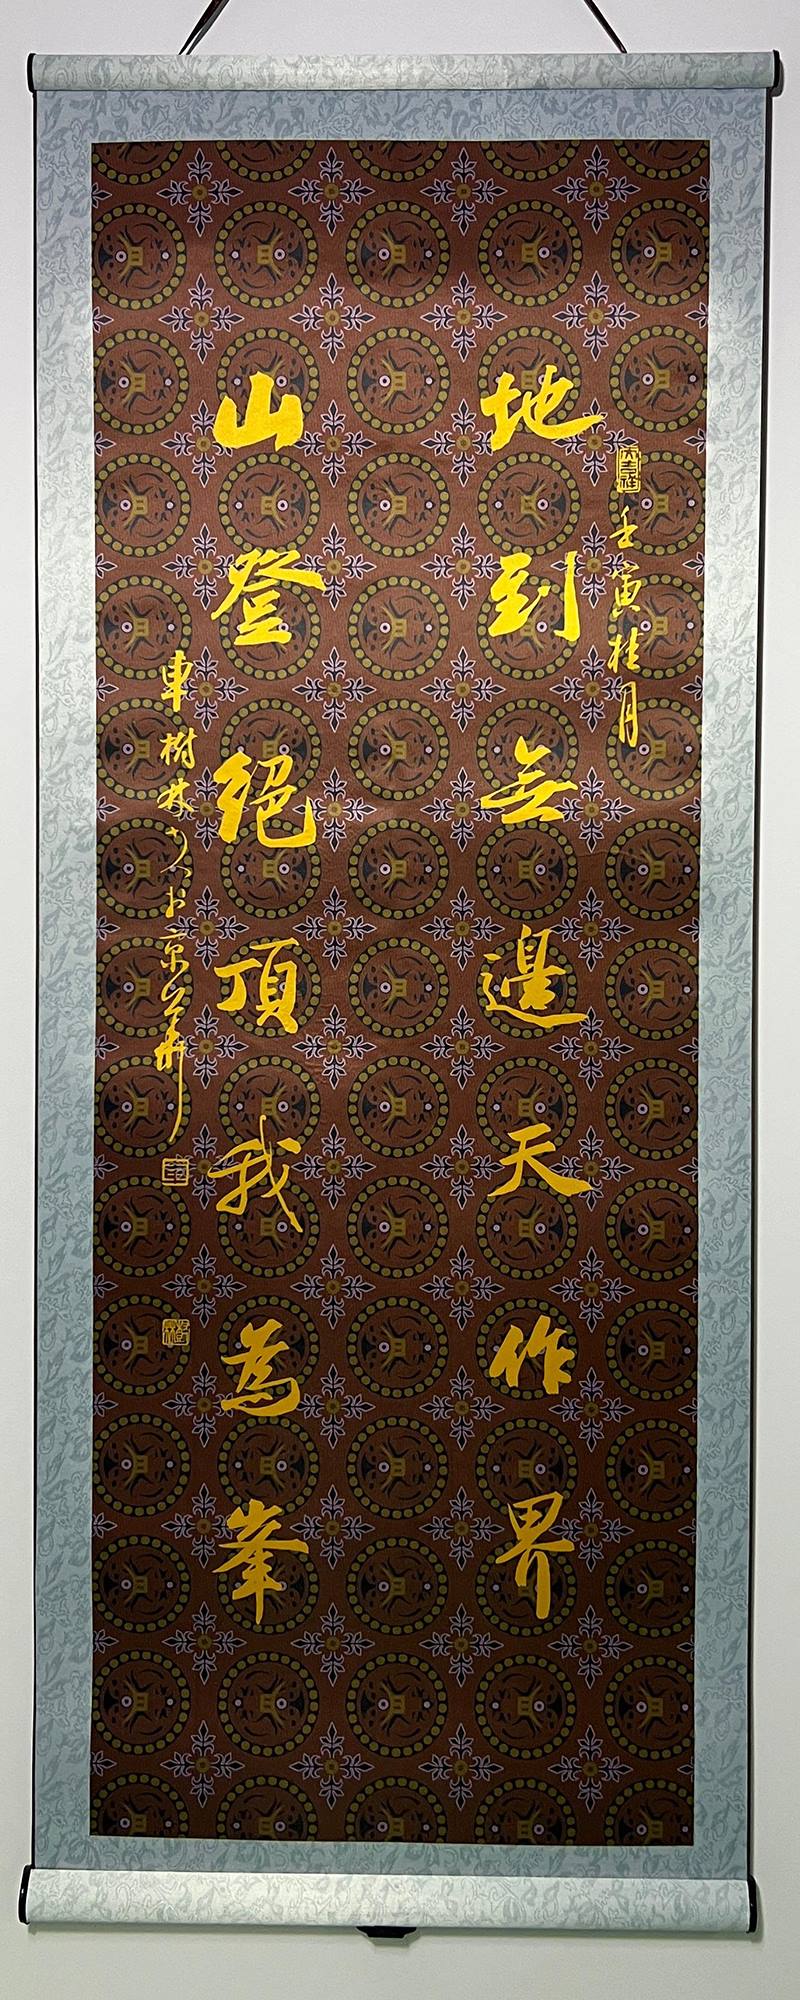 壬寅桂月
地到無邊天作界
山登絕頂我為峯
車樹林
京華